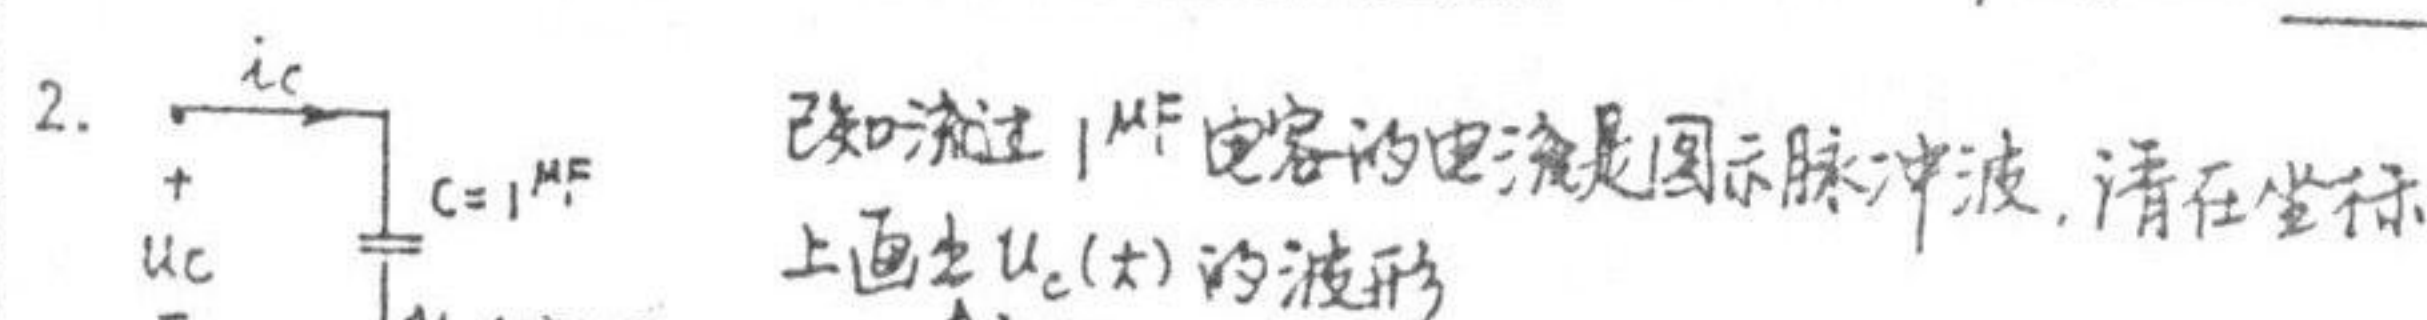 2.
ic
+
uc
-
C=1μF
已知流过1μF电容的电流是图示脉冲波,请在坐标
上画出uc(t)的波形